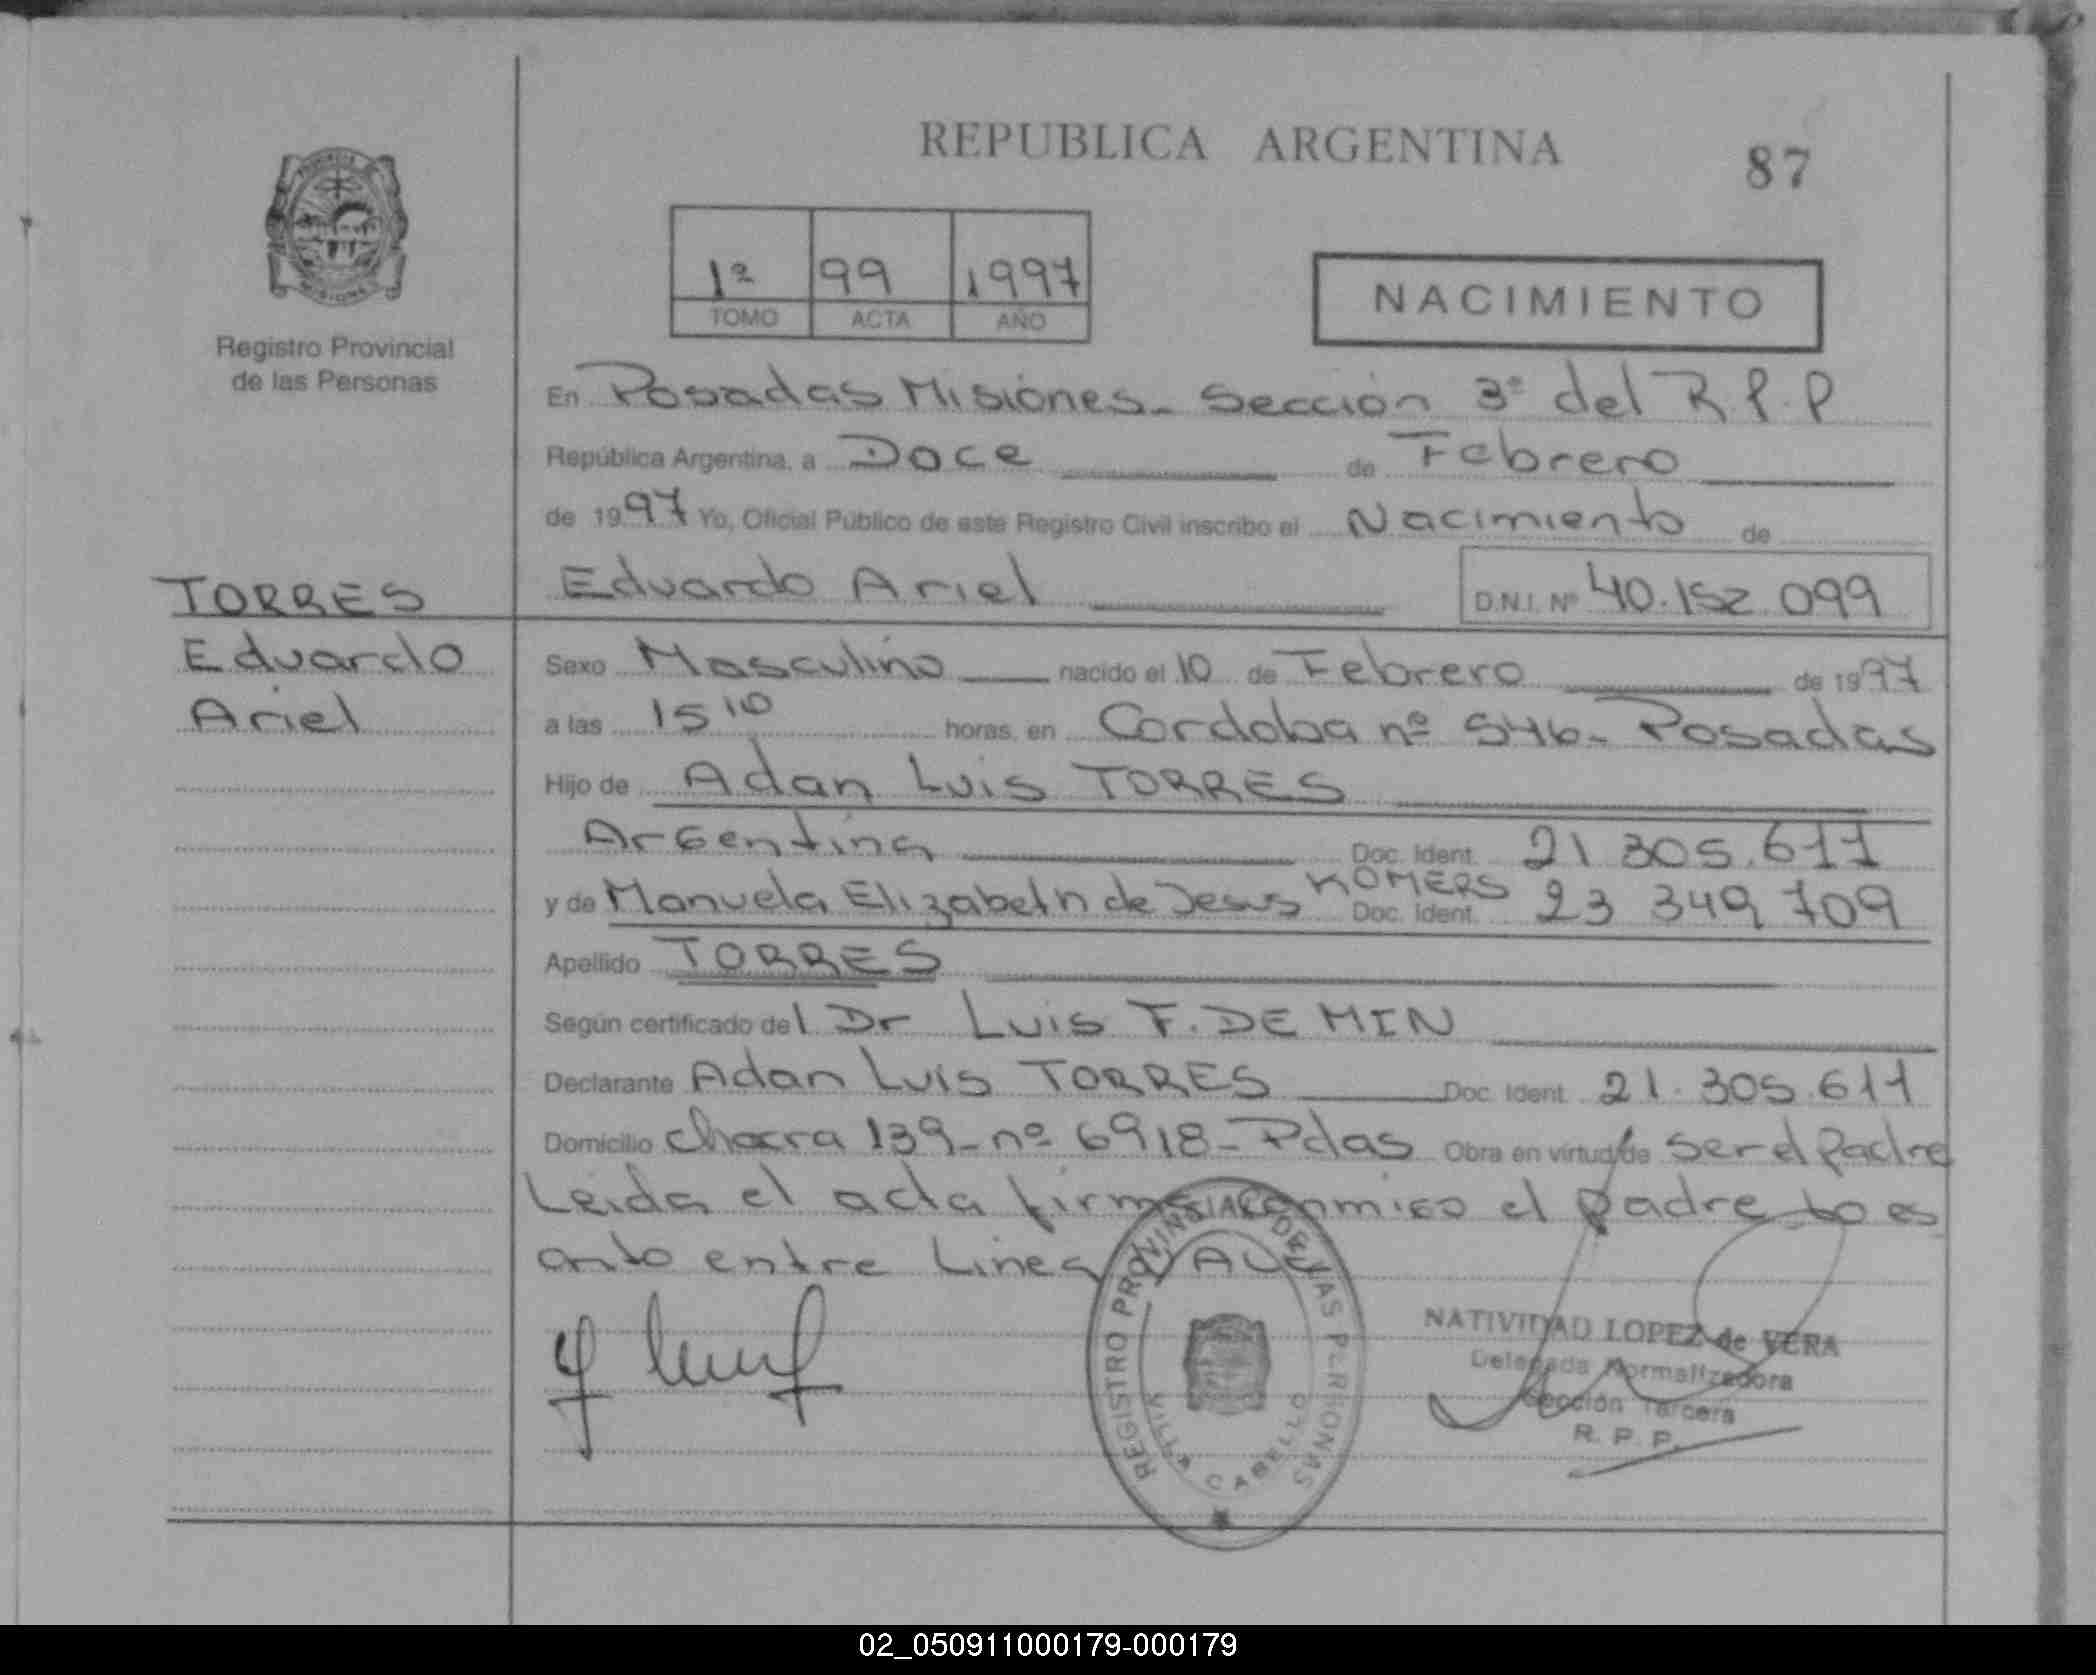 REPUBLICA ARGENTINA
87
1º 99 1997
TOMO ACTA AÑO
NACIMIENTO
Registro Provincial
de las Personas
En Posadas Misiones - Sección 3º del R.P.P
República Argentina, a Doce de Febrero
de 1997 Yo, Oficial Público de este Registro Civil inscribo el Nacimiento de
TORRES
Eduardo Ariel D.N.I. Nº 40.152.099
Eduardo
Ariel
Sexo Masculino nacido el 10 de Febrero de 1997
a las 15 10 horas, en Cordoba nº 546 - Posadas
Hijo de Adan Luis TORRES
Argentina Doc. Ident. 21 305.611
y de Manuela Elizabeth de Jesus KOMERS Doc. Ident. 23 349 709
Apellido TORRES
Según certificado del Dr Luis F. DE MIN
Declarante Adan Luis TORRES Doc. Ident. 21.305.611
Domicilio chacra 139 - nº 6918 - Pdas Obra en virtud de ser el Padre
Leida el acta firma conmigo el padre
entre Linea VALE
REGISTRO PROVINCIAL DE LAS PERSONAS
VILLA CABELLO
NATIVIDAD LOPEZ de VERA
Delegada Normalizadora
Sección Tercera
R. P. P.
02_050911000179-000179